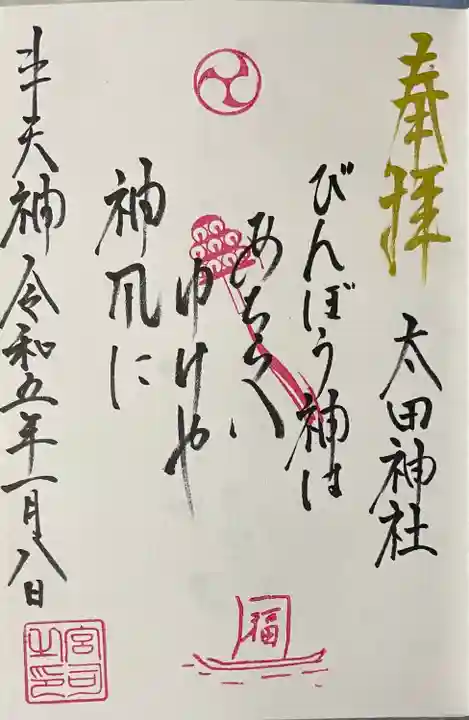 奉拝
太田神社
びんぼう神は
あちらへ
ゆけや
神爪に
半天神 令和五年一月八日
福
宮司之印